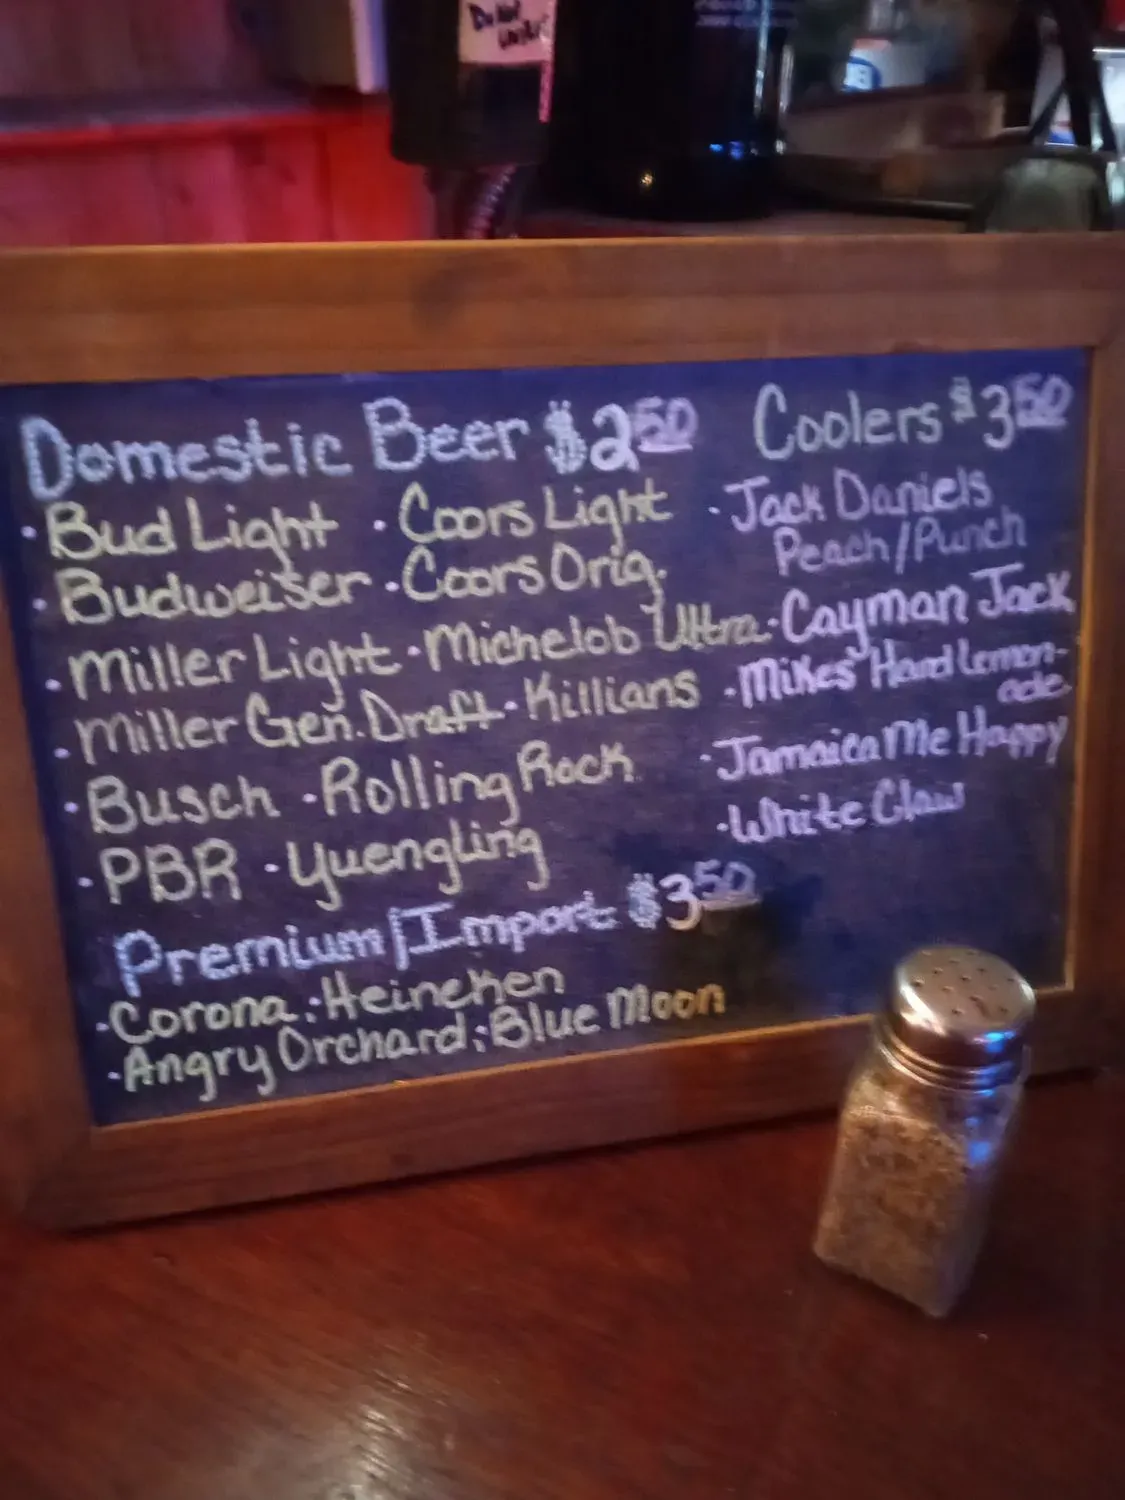 Do Not
Domestic Beer $2.50
· Bud Light · Coors Light
· Budweiser · Coors Orig.
· Miller Light · Michelob Ultra
· Miller Gen. Draft · Killians
· Busch · Rolling Rock
· PBR · Yuengling
Premium/Import $3.50
· Corona · Heineken
· Angry Orchard · Blue Moon
Coolers $3.50
· Jack Daniels
Peach/Punch
· Cayman Jack
· Mikes Hard Lemon-
ade
· Jamaica Me Happy
· White Claw